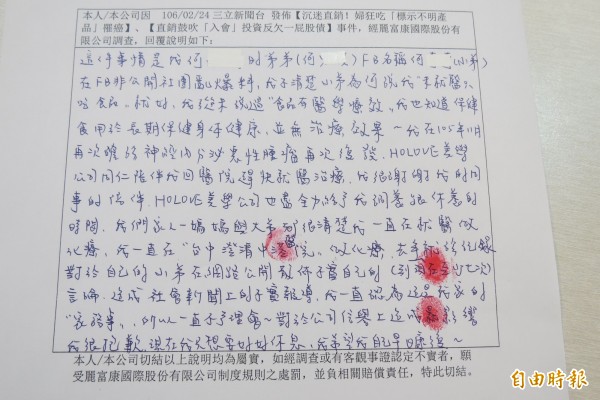 本人/本公司因 106/02/24 三立新聞台 發佈【沉迷直銷!婦狂吃「標示不明產
品」罹癌】、【直銷鼓吹「入會」投資反欠一屁股債】事件,經麗富康國際股份有
限公司調查,回覆說明如下:
這件事情是我何 的弟弟(何 )FB名稱何 (小弟)
在FB非公開社團亂爆料,我不清楚小弟為何說我"未就醫只
吃食品"就好,我從未說過"食品有醫學療效",我也知道保健
食用於長期保健身保健康,並無治療效果~我在105年11月
再次確診神經內分泌惡性腫瘤再次復發,HOLOVE美學
公司同仁陪伴我回醫院趕快就醫治療,我很謝謝我的同
事的陪伴,HOLOVE美學公司也盡全力給予我調養跟休養的
時間,我們家人媽媽與大弟都很清楚我一直在就醫做
化療,我一直在"台中澄清中港醫院"做化療,去年
對於自己的小弟在網路公開散佈不實自己的
言論,造成社會新聞上的不實報導,我一直認為這是我家的
"家務事",所以一直不予理會~對於公司信譽上造成 影響
我很抱歉,現在我只想要好好休息,我希望我自己早日康復~
本人/本公司切結以上說明均為屬實,如經調查或有客觀事證認定不實者,願
受麗富康國際股份有限公司制度規則之處罰,並負相關賠償責任,特此切結。
自由時報